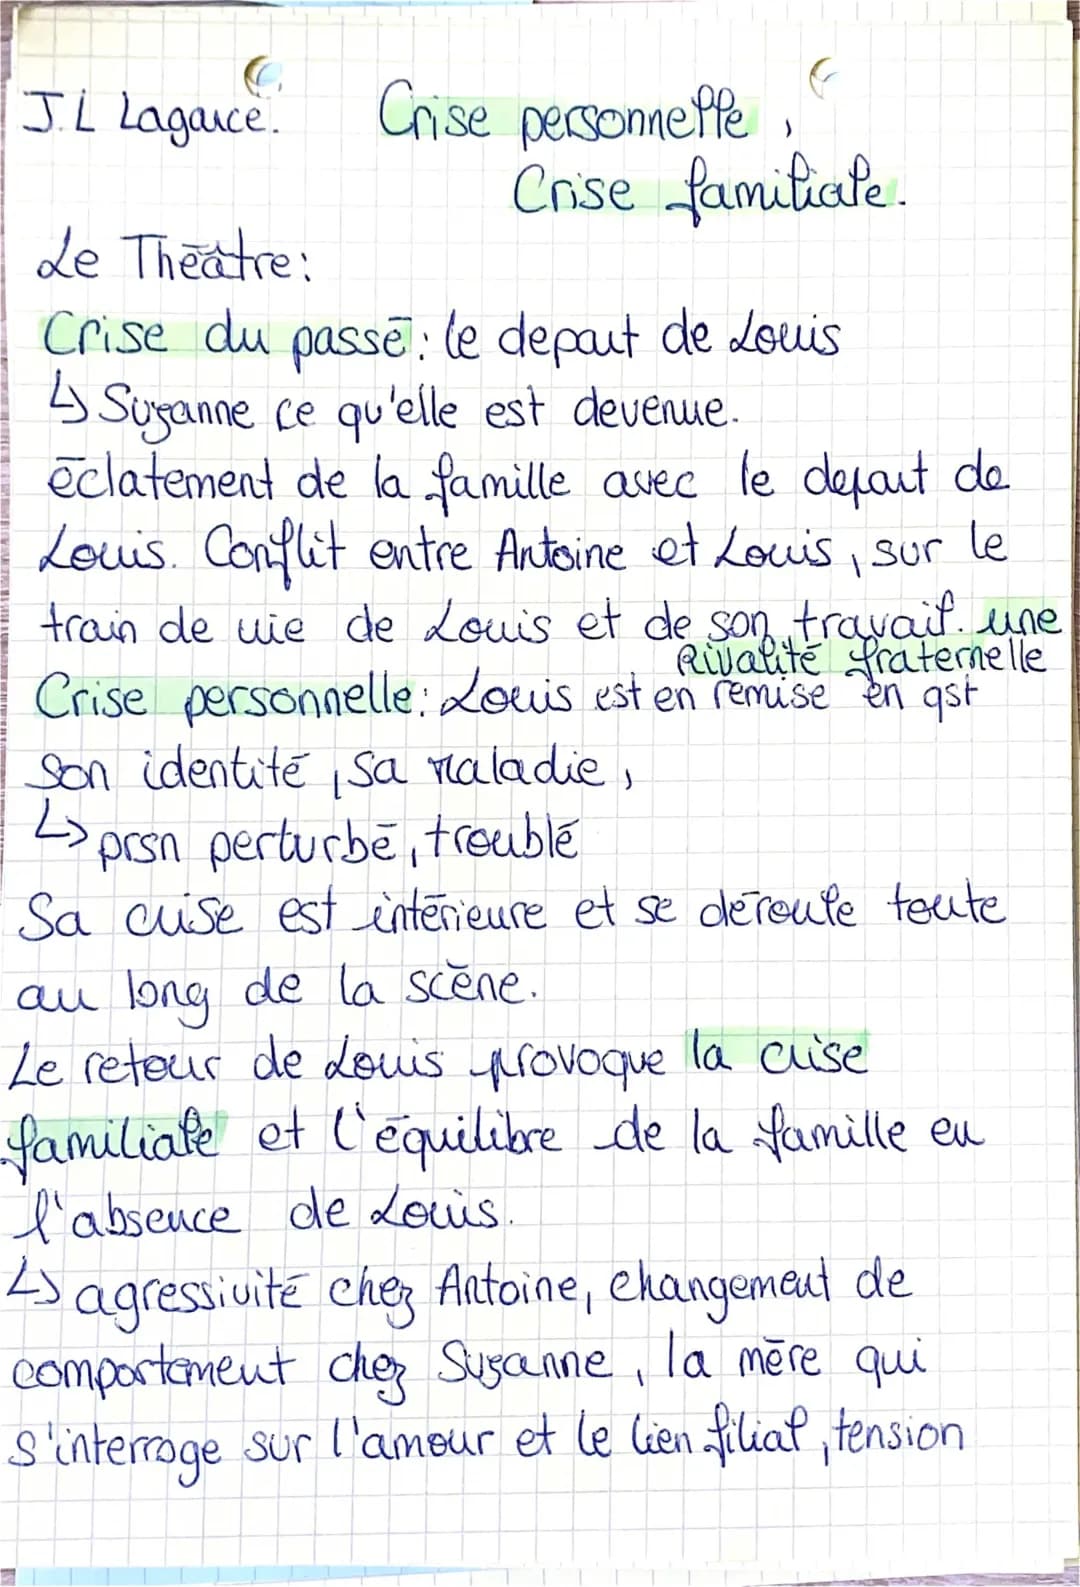 J.L Lagarce. Crise personnelle,
Crise familiale.
Le Théâtre:
Crise du passé: le depart de Louis
↳ Suzanne ce qu'elle est devenue.
éclatement de la famille avec le depart de
Louis. Conflit entre Antoine et Louis, sur le
train de vie de Louis et de son travail. une
Rivalité fraternelle
Crise personnelle: Louis est en remise en qst
son identité, sa maladie,
↳ prsn perturbé, troublé
Sa crise est intérieure et se déroule toute
au long de la scène.
Le retour de Louis provoque la crise
familiale et l'équilibre de la famille en
l'absence de Louis.
↳ agressivité chez Antoine, changement de
comportement chez Suzanne, la mère qui
s'interroge sur l'amour et le lien filial, tension